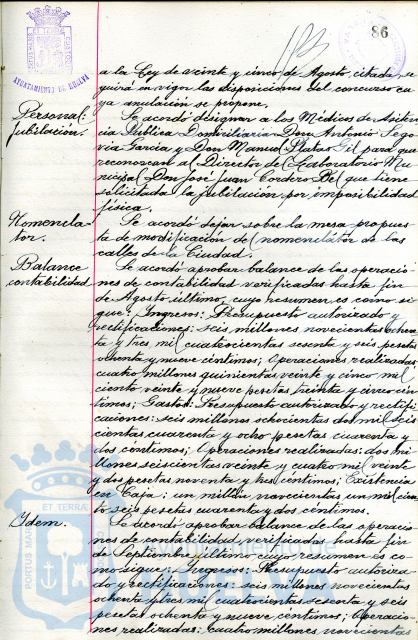 86
AYUNTAMIENTO DE HUELVA
a la Ley de veinte y cinco de Agosto citada, se
guirá en vigor las disposiciones del concurso cu
ya anulación se propone.
Personal:
Jubilación.
Se acordó designar a los Médicos de Asisten
cia Pública Domiciliaria Don Antonio Sego
via García y Don Manuel Matao Gil para que
reconozcan al Director del Laboratorio Mu
nicipal Don José Juan Cordero Bel que tiene
solicitada la jubilación por imposibilidad
física.
Nomencla-
tor.
Se acordó dejar sobre la mesa propues
ta de modificación del nomenclator de las
calles de la Ciudad.
Balance
contabilidad
Se acordó aprobar balance de las operacio
nes de contabilidad verificadas hasta fin
de Agosto último, cuyo resumen es como si
gue: Ingresos: Presupuesto autorizado y
rectificaciones: seis millones novecientos ochen
ta y tres mil cuatrocientas sesenta y seis pesetas
ochenta y nueve céntimos; Operaciones realizadas:
cuatro millones quinientas veinte y cinco mil
ciento veinte y nueve pesetas treinta y cinco cén
timos; Gastos: Presupuesto autorizado y rectifi
caciones: seis millones ochocientas dos mil seis
cientas cuarenta y ocho pesetas cuarenta y
dos céntimos; Operaciones realizadas: dos mi
llones seiscientas veinte y cuatro mil veinte
y dos pesetas noventa y tres céntimos; Existencia
en Caja: un millón novecientas un mil cien
to seis pesetas cuarenta y dos céntimos.
Idem.
Se acordó aprobar balance de las operacio
nes de contabilidad verificadas hasta fin
de Septiembre último, cuyo resumen es co
mo sigue: Ingresos: Presupuesto autoriza
do y rectificaciones: seis millones novecientas
ochenta y tres mil cuatrocientas sesenta y seis
pesetas ochenta y nueve céntimos; Operacio
nes realizadas: cuatro millones novecientas
PORTUS MARIS
ET TERRA
HUELVA